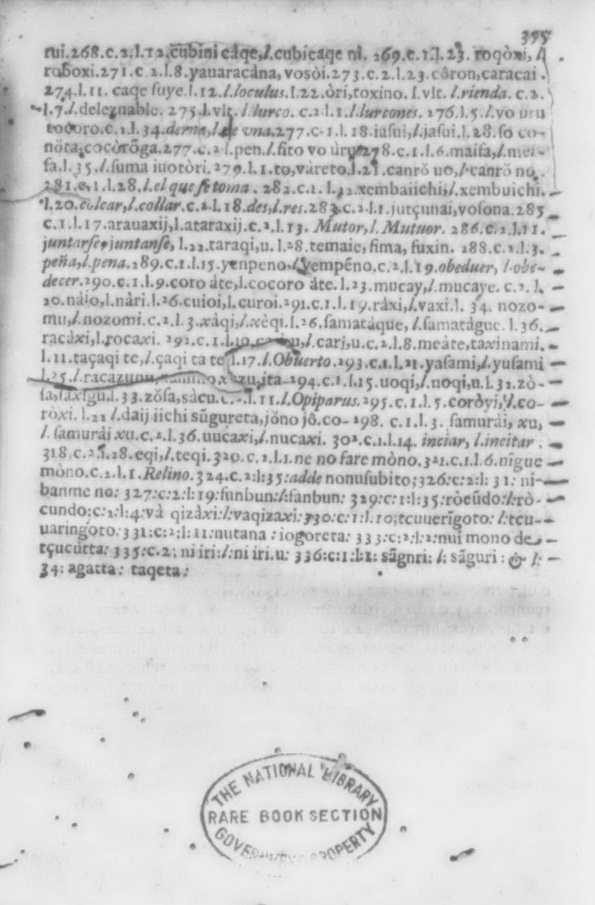 355
rui.268.c.2.l.12.cũbini cãqe,l.cubicaqe nì. 269.c.1.l.23. roqòxi, l
roboxi.271.c.2.l.8.yauaracâna, vosòi.273.c.2.l.23.côron,caracai
274.l.11. caqe fuye.l.12.l.loculus.l.22.òri,toxino.l.vlt. l.rienda. c.2.
l.7.l.deleznable. 275.l.vlt. l.lurco. c.2.l.1.l.lurcones. 276.l.5.l.vo uru
c.1.l.34. 277.c.1.l.18.iasui,l.jasui.l.28.so co-
nõta,cocorõga.277.c.2.l.pen.l.fito vo uru.278.c.1.l.6.maisa,l.mei-
sa.l.35.l.suma iuotòri.279.l.1.to,vàreto.l.21.canrõ uo,l.canrõ no.
281.c.1.l.28.l.el que se toma. 282.c.1.l.32.xembaiichi,l.xembuichi.
l.20.colcar,l.collar.c.2.l.18.des,l.res.283.c.2.l.1.jutçunai,vosona.285
c.1.l.17.arauaxij,l.ataraxij.c.2.l.13. Mutor, l. Mutuor. 286.c.2.l.11.
juntarse,juntanse, l.22.taraqi,u.l.28.temaie, fima, fuxin. 288.c.2.l.3.
peña,l.pena.289.c.1.l.15.yenpeno,l.yempêno.c.2.l.19.obeduer, l.obe-
decer.290.c.1.l.9.coro áte,l.cocoro áte.l.23.mucay,l.mucáye. c.2.l.
20.nàjo,l.nàri.l.26.cuioi,l.curoi.291.c.1.l.19.ràxi,l.vaxi.l. 34. nozo-
mu,l.nozomi.c.2.l.3.xàqi,l.xèqi.l.26.samatáque, l.samatágue. l.36.
racàxi,l.rocaxi. 292.c.1.l.10. l.cari,u.c.2.l.8.meàte,taxinami.
l.11.taçaqi te,l.çaqi ta te l.17.l.Obuerto.293.c.1.l.21.yasami,l.yusami
l.25.l.racazunu, ita.294.c.1.l.15.uoqi,l.noqi,u.l.31.zò-
l.33.zôsa,sàcu. l.11.l.Opiparus.295.c.1.l.5.coròyi,l.co-
ròxi. l.22 l.daij iichi sũgureta,jôno jô.co-298. c.1.l.3. samurài, xu,
l.samurài xu.c.2.l.36.uucaxi,l.nucaxi. 302.c.1.l.14. inciar, l.incitar.
318.c.2.l.28.eqi,l.teqi.320.c.2.l.1.ne no fare mòno.321.c.1.l.6.nigue
mòno.c.2.l.1.Relino.324.c.2:l:35:adde nonusubito;326:c:2:l: 31: ni-
banme no: 327:c:2:l:19:funbun:l:fanbun: 329:c:1:l:35:ròcũdo:l:rò-
cundo:c:2:l:4:và qizàxi:l:vaqizaxi:330:c:1:l:10:tcuuerigoto: l:tcu-
uaringoto: 331:c:2:l:11:nutana : iogoreta: 333:c:2:l:2:nui mono de
tçucutta: 335:c.2; ni iri:l:ni iri.u: 336:c:1:l:1: sãgnri: l: sãguri : & l:
34: agatta: taqeta:
THE NATIONAL LIBRARY
RARE BOOK SECTION
GOVERNMENT PROPERTY